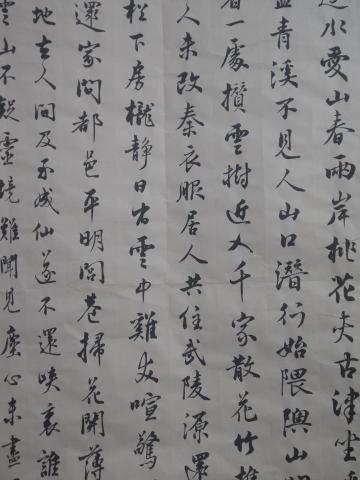 水愛山春兩岸桃花夾古津坐
盡青溪不見人山口潛行始隈隩山
看一處攢雲樹近入千家散花竹樵
人未改秦衣服居人共住武陵源還
松下房櫳靜日出雲中雞犬喧驚
還家問都邑平明閭巷掃花開薄
地去人間及至成仙遂不還峽裏誰
雲山不疑靈境難聞見塵心未盡